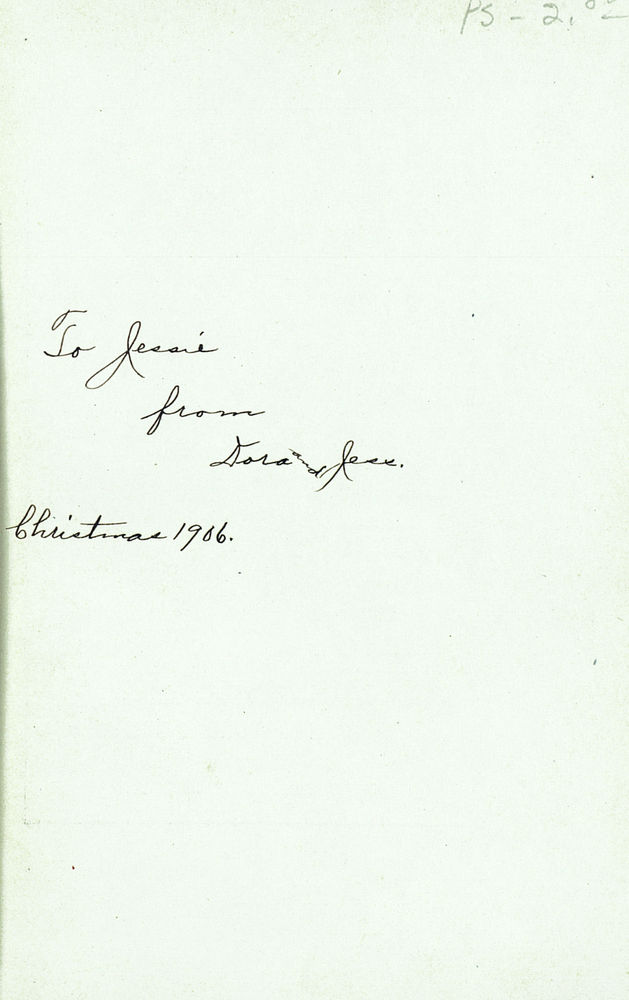 PS - 2.
To Jessie
from
Dora and Jess.
Christmas 1906.